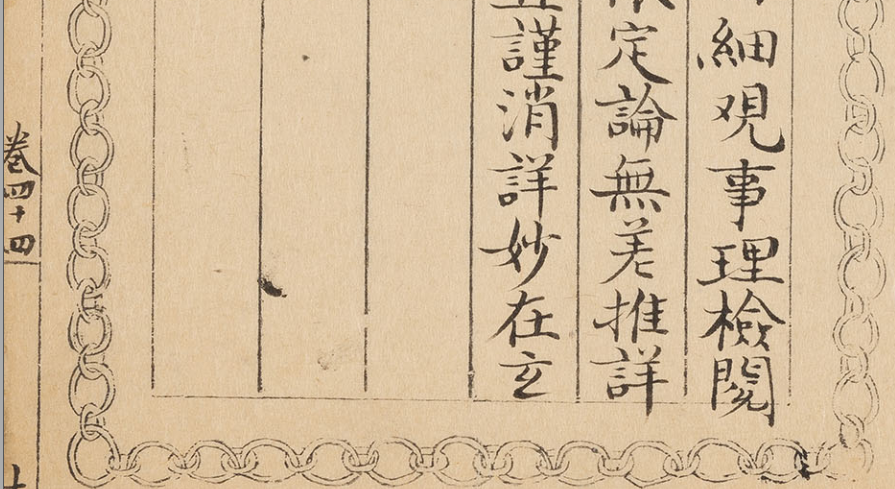 細观事理檢閱
定論無差推詳
謹消詳妙在玄
卷四十四